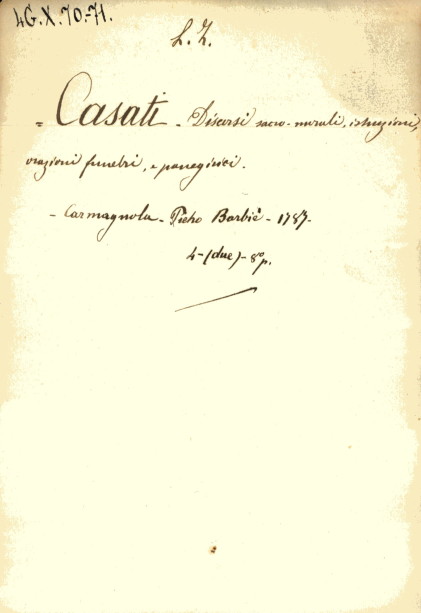 4G.X.70-71.
L. Z.
= Casati - Discorsi sacro-morali, istruzioni,
orazioni funebri, e panegirici.
- Carmagnola - Pietro Barbiè - 1787-
4-(due)-8º p.